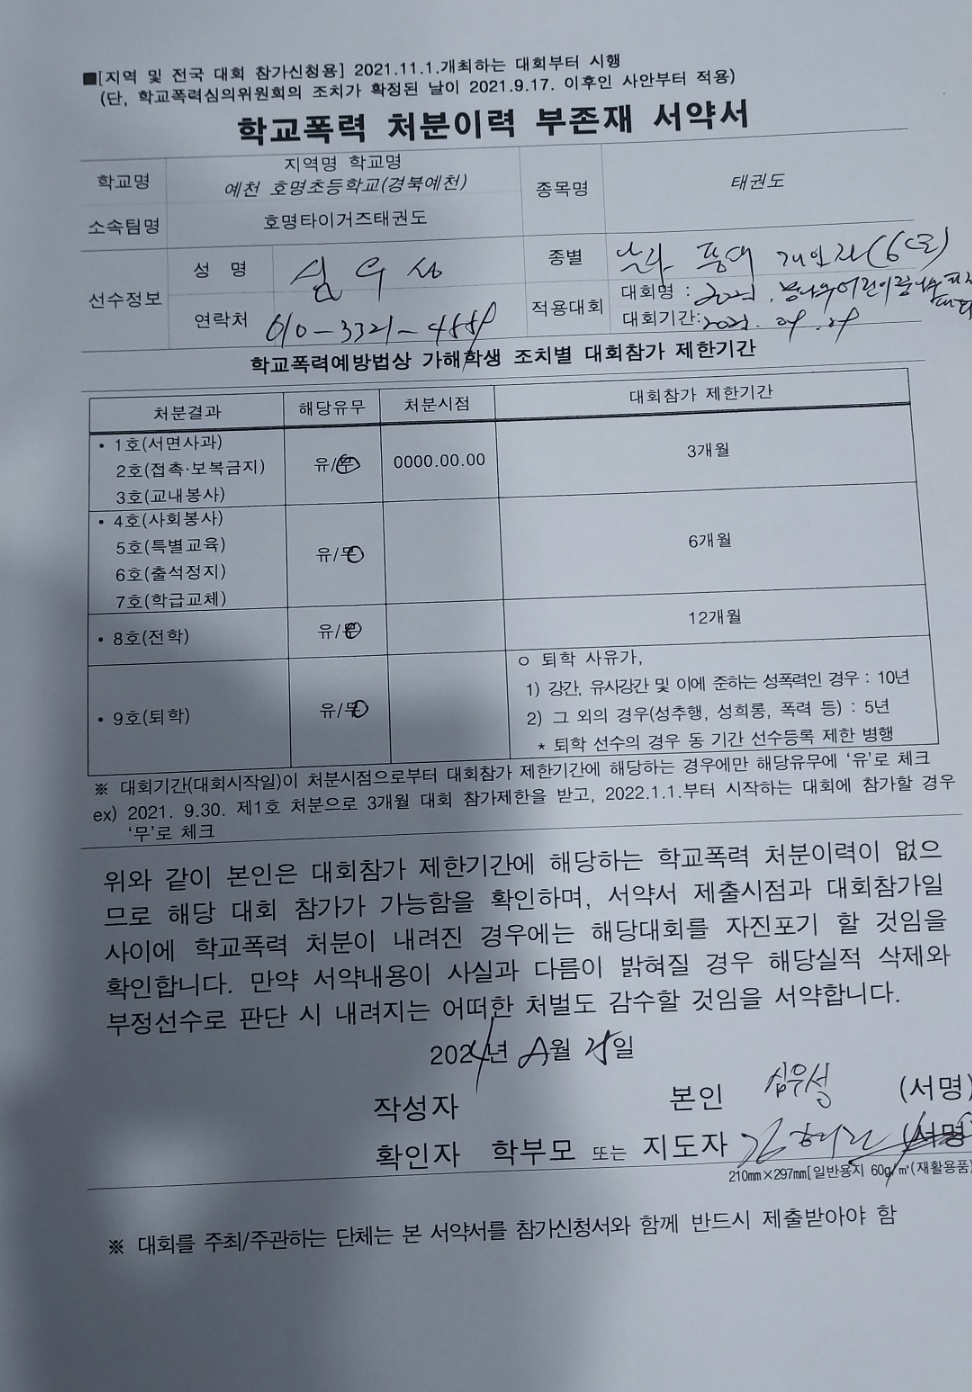 ■[지역 및 전국 대회 참가신청용] 2021.11.1.개최하는 대회부터 시행
(단, 학교폭력심의위원회의 조치가 확정된 날이 2021.9.17. 이후인 사안부터 적용)
학교폭력 처분이력 부존재 서약서
학교명 지역명 학교명 예천 호명초등학교(경북예천) 종목명 태권도
소속팀명 호명타이거즈태권도
선수정보 성 명 심우성 종별 품새 개인전(
연락처 적용대회 대회명 :
대회기간:
학교폭력예방법상 가해학생 조치별 대회참가 제한기간
처분결과 해당유무 처분시점 대회참가 제한기간
• 1호(서면사과)
2호(접촉·보복금지) 유/무 0000.00.00 3개월
3호(교내봉사)
• 4호(사회봉사)
5호(특별교육) 유/무 6개월
6호(출석정지)
7호(학급교체)
• 8호(전학) 유/무 12개월
• 9호(퇴학) 유/무
○ 퇴학 사유가,
1) 강간, 유사강간 및 이에 준하는 성폭력인 경우 : 10년
2) 그 외의 경우(성추행, 성희롱, 폭력 등) : 5년
* 퇴학 선수의 경우 동 기간 선수등록 제한 병행
※ 대회기간(대회시작일)이 처분시점으로부터 대회참가 제한기간에 해당하는 경우에만 해당유무에 '유'로 체크
ex) 2021. 9.30. 제1호 처분으로 3개월 대회 참가제한을 받고, 2022.1.1.부터 시작하는 대회에 참가할 경우
'무'로 체크
위와 같이 본인은 대회참가 제한기간에 해당하는 학교폭력 처분이력이 없으
므로 해당 대회 참가가 가능함을 확인하며, 서약서 제출시점과 대회참가일
사이에 학교폭력 처분이 내려진 경우에는 해당대회를 자진포기 할 것임을
확인합니다. 만약 서약내용이 사실과 다름이 밝혀질 경우 해당실적 삭제와
부정선수로 판단 시 내려지는 어떠한 처벌도 감수할 것임을 서약합니다.
202 년 월 일
작성자 본인 심우성 (서명)
확인자 학부모 또는 지도자 (서명)
210㎜×297㎜[일반용지 60g/㎡(재활용품)
※ 대회를 주최/주관하는 단체는 본 서약서를 참가신청서와 함께 반드시 제출받아야 함